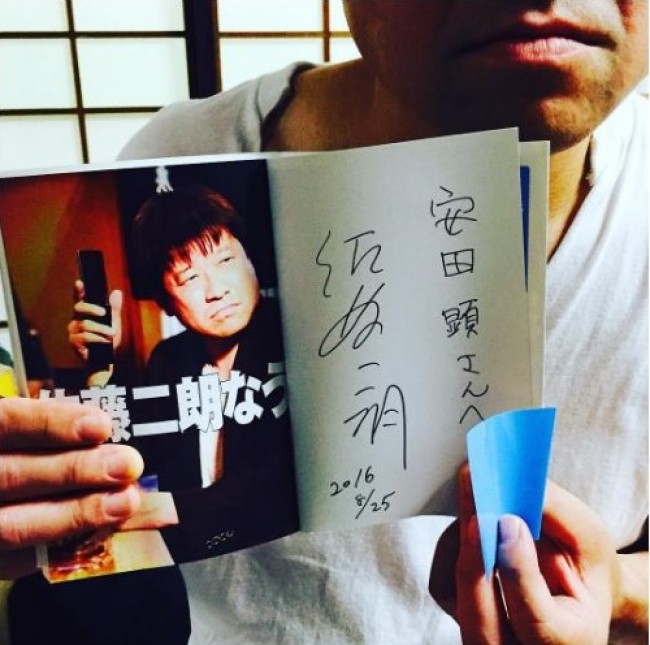 佐藤二朗なう
安田顕さんへ
佐藤二朗
2016
8/25